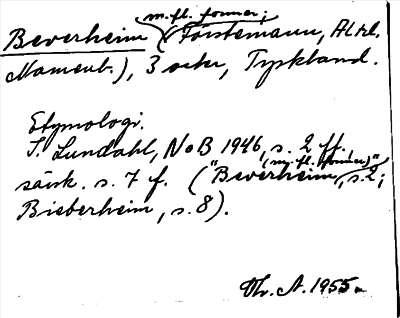 m. fl. former;
Beverheim (Förstemann, Altd.
Namenb.), 3 orter, Tyskland.
Etymologi.
I. Lundahl, NoB 1946, s. 2 ff.,
särsk. s. 7 f. ("Beverheim (m. fl. former)", s. 2;
Bieberheim, s. 8).
Th. A. 1955